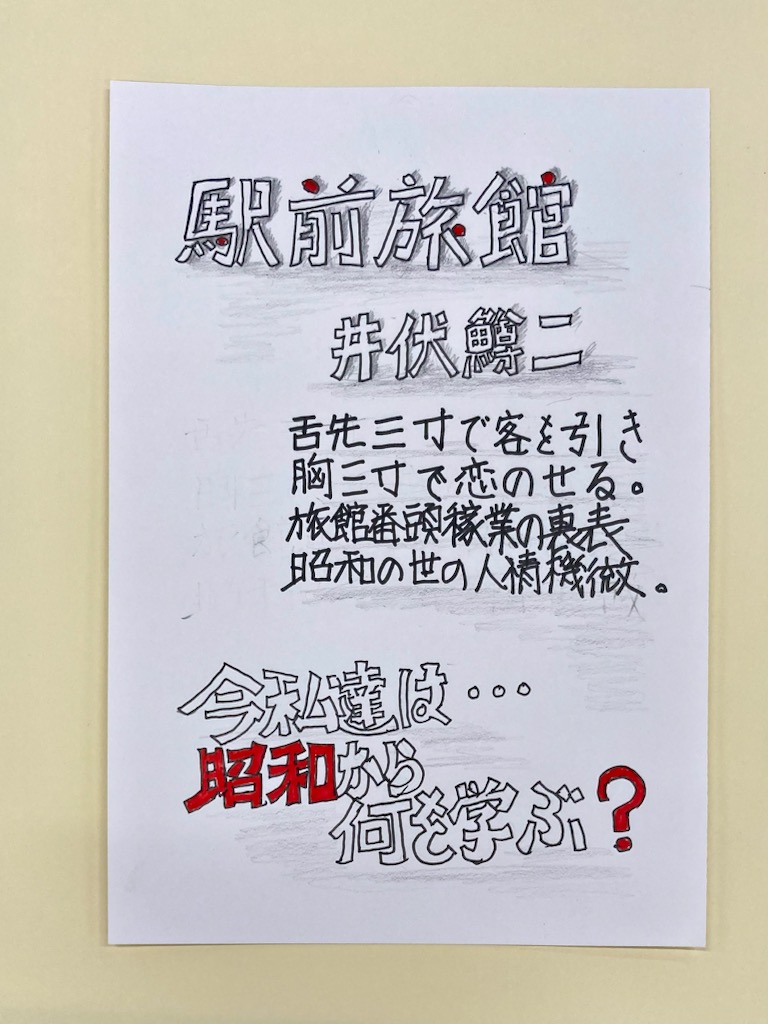 駅前旅館
井伏鱒二
舌先三寸で客を引き
胸三寸で恋のせる。
旅館番頭稼業の裏表
昭和の世の人情機微。
今私達は・・・
昭和から
何を学ぶ?